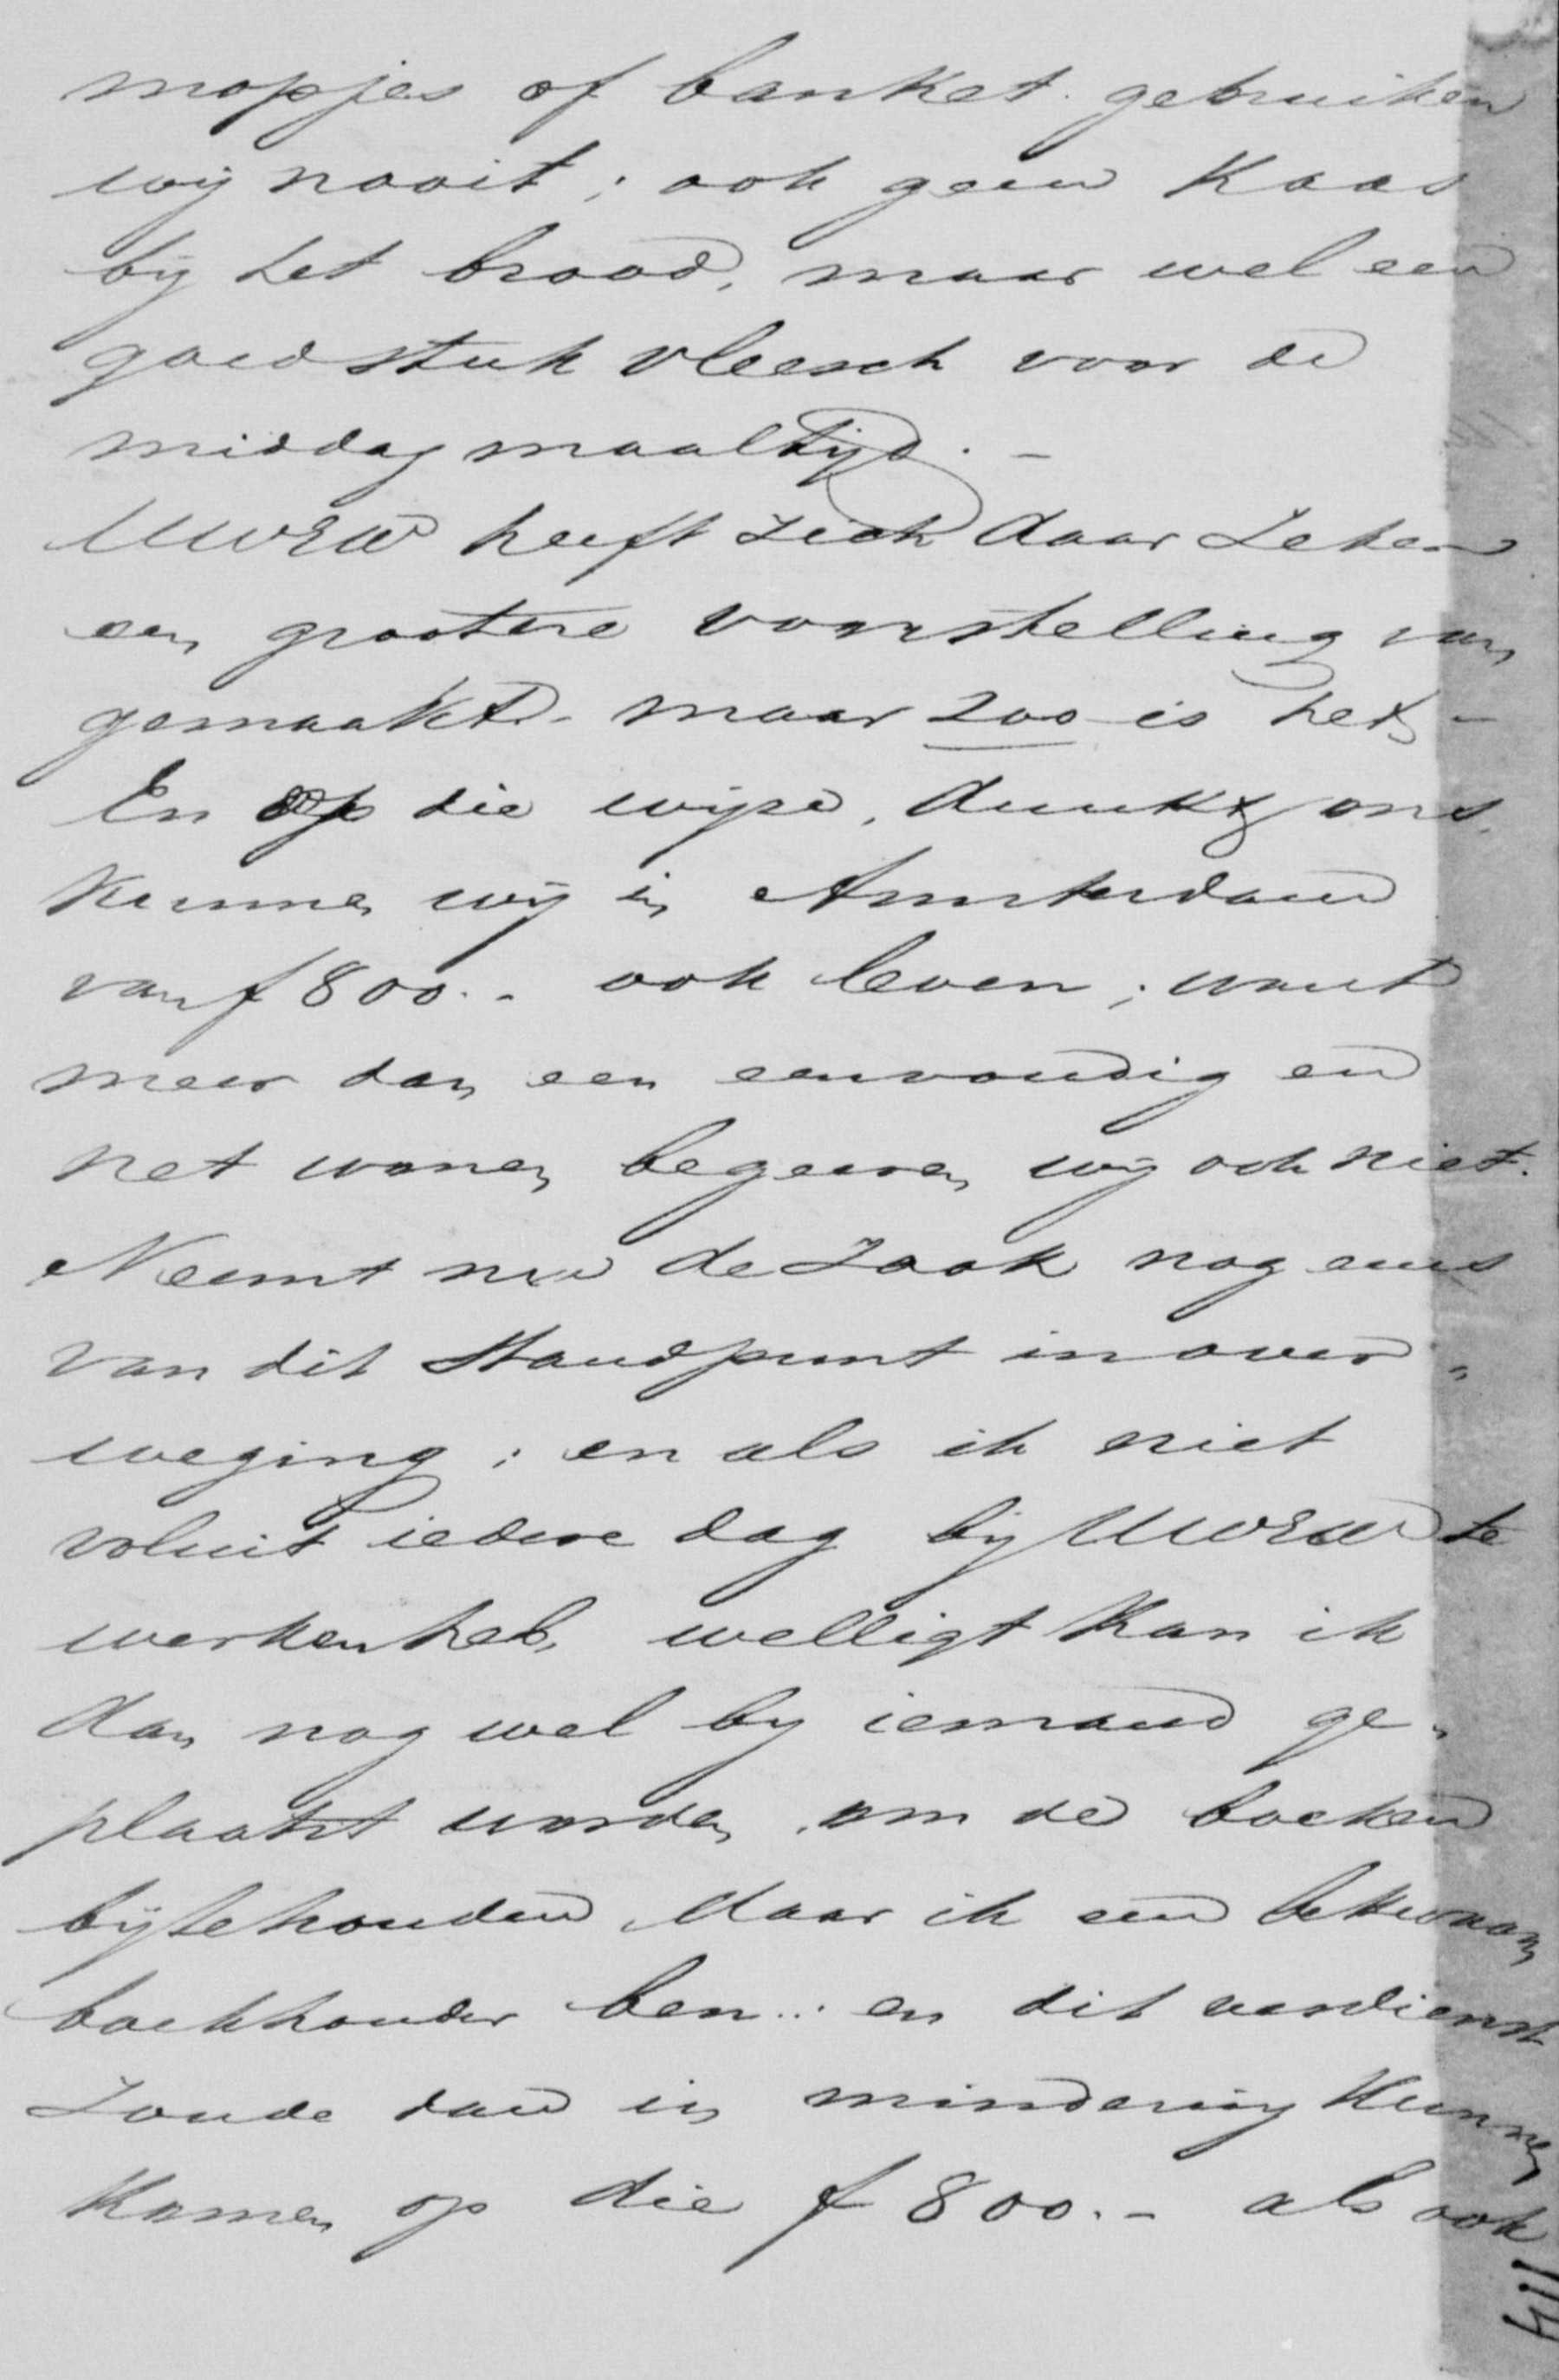 mopjes of banket gebruiken
wij nooit; ook geen Kaas
bij het brood, maar wel een
goed stuk vleesch voor de
middagmaaltijd. –
UWEW heeft zich daar Zeker
een grootere voorstelling van
gemaakt – maar zoo is het –
En op die wijze, dunkt ons
Kunnen wij in Amsterdam
van f 800.- ook leven; want
meer dan een eenvoudig en
net wonen begeeren wij ook niet.
Neemt nu de Zaak nog eens
van dit Standpunt in over=
weging; en als ik niet
voluit iedere dag bij UWEW te
werken heb, welligt Kan ik
dan nog wel by iemand ge=
plaatst worden, om de boeken
bijtehouden, daar ik een bekwaam
boekhouder ben..: en dit verdienst
Zoude dan in mindering Kunnen
Komen op die f 800.- als ook
114